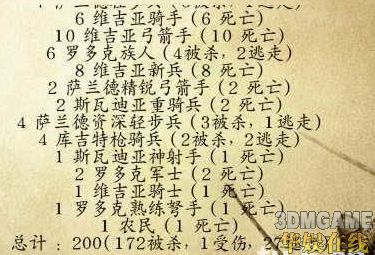 6 维吉亚骑手 (6 死亡)
10 维吉亚弓箭手 (10 死亡)
6 罗多克族人 (4被杀, 2逃走)
8 维吉亚新兵 (8 死亡)
2 萨兰德精锐弓箭手 (2 死亡)
2 斯瓦迪亚重骑兵 (2 死亡)
4 萨兰德资深轻步兵 (3被杀, 1逃走)
4 库吉特枪骑兵 (2被杀, 2逃走)
1 斯瓦迪亚神射手 (1 死亡)
2 罗多克军士 (2 死亡)
1 维吉亚骑士 (1 死亡)
1 罗多克熟练弩手 (1 死亡)
1 农民 (1 死亡)
总计 : 200(172被杀, 1受伤, 27
3DMGAME
华娱在线